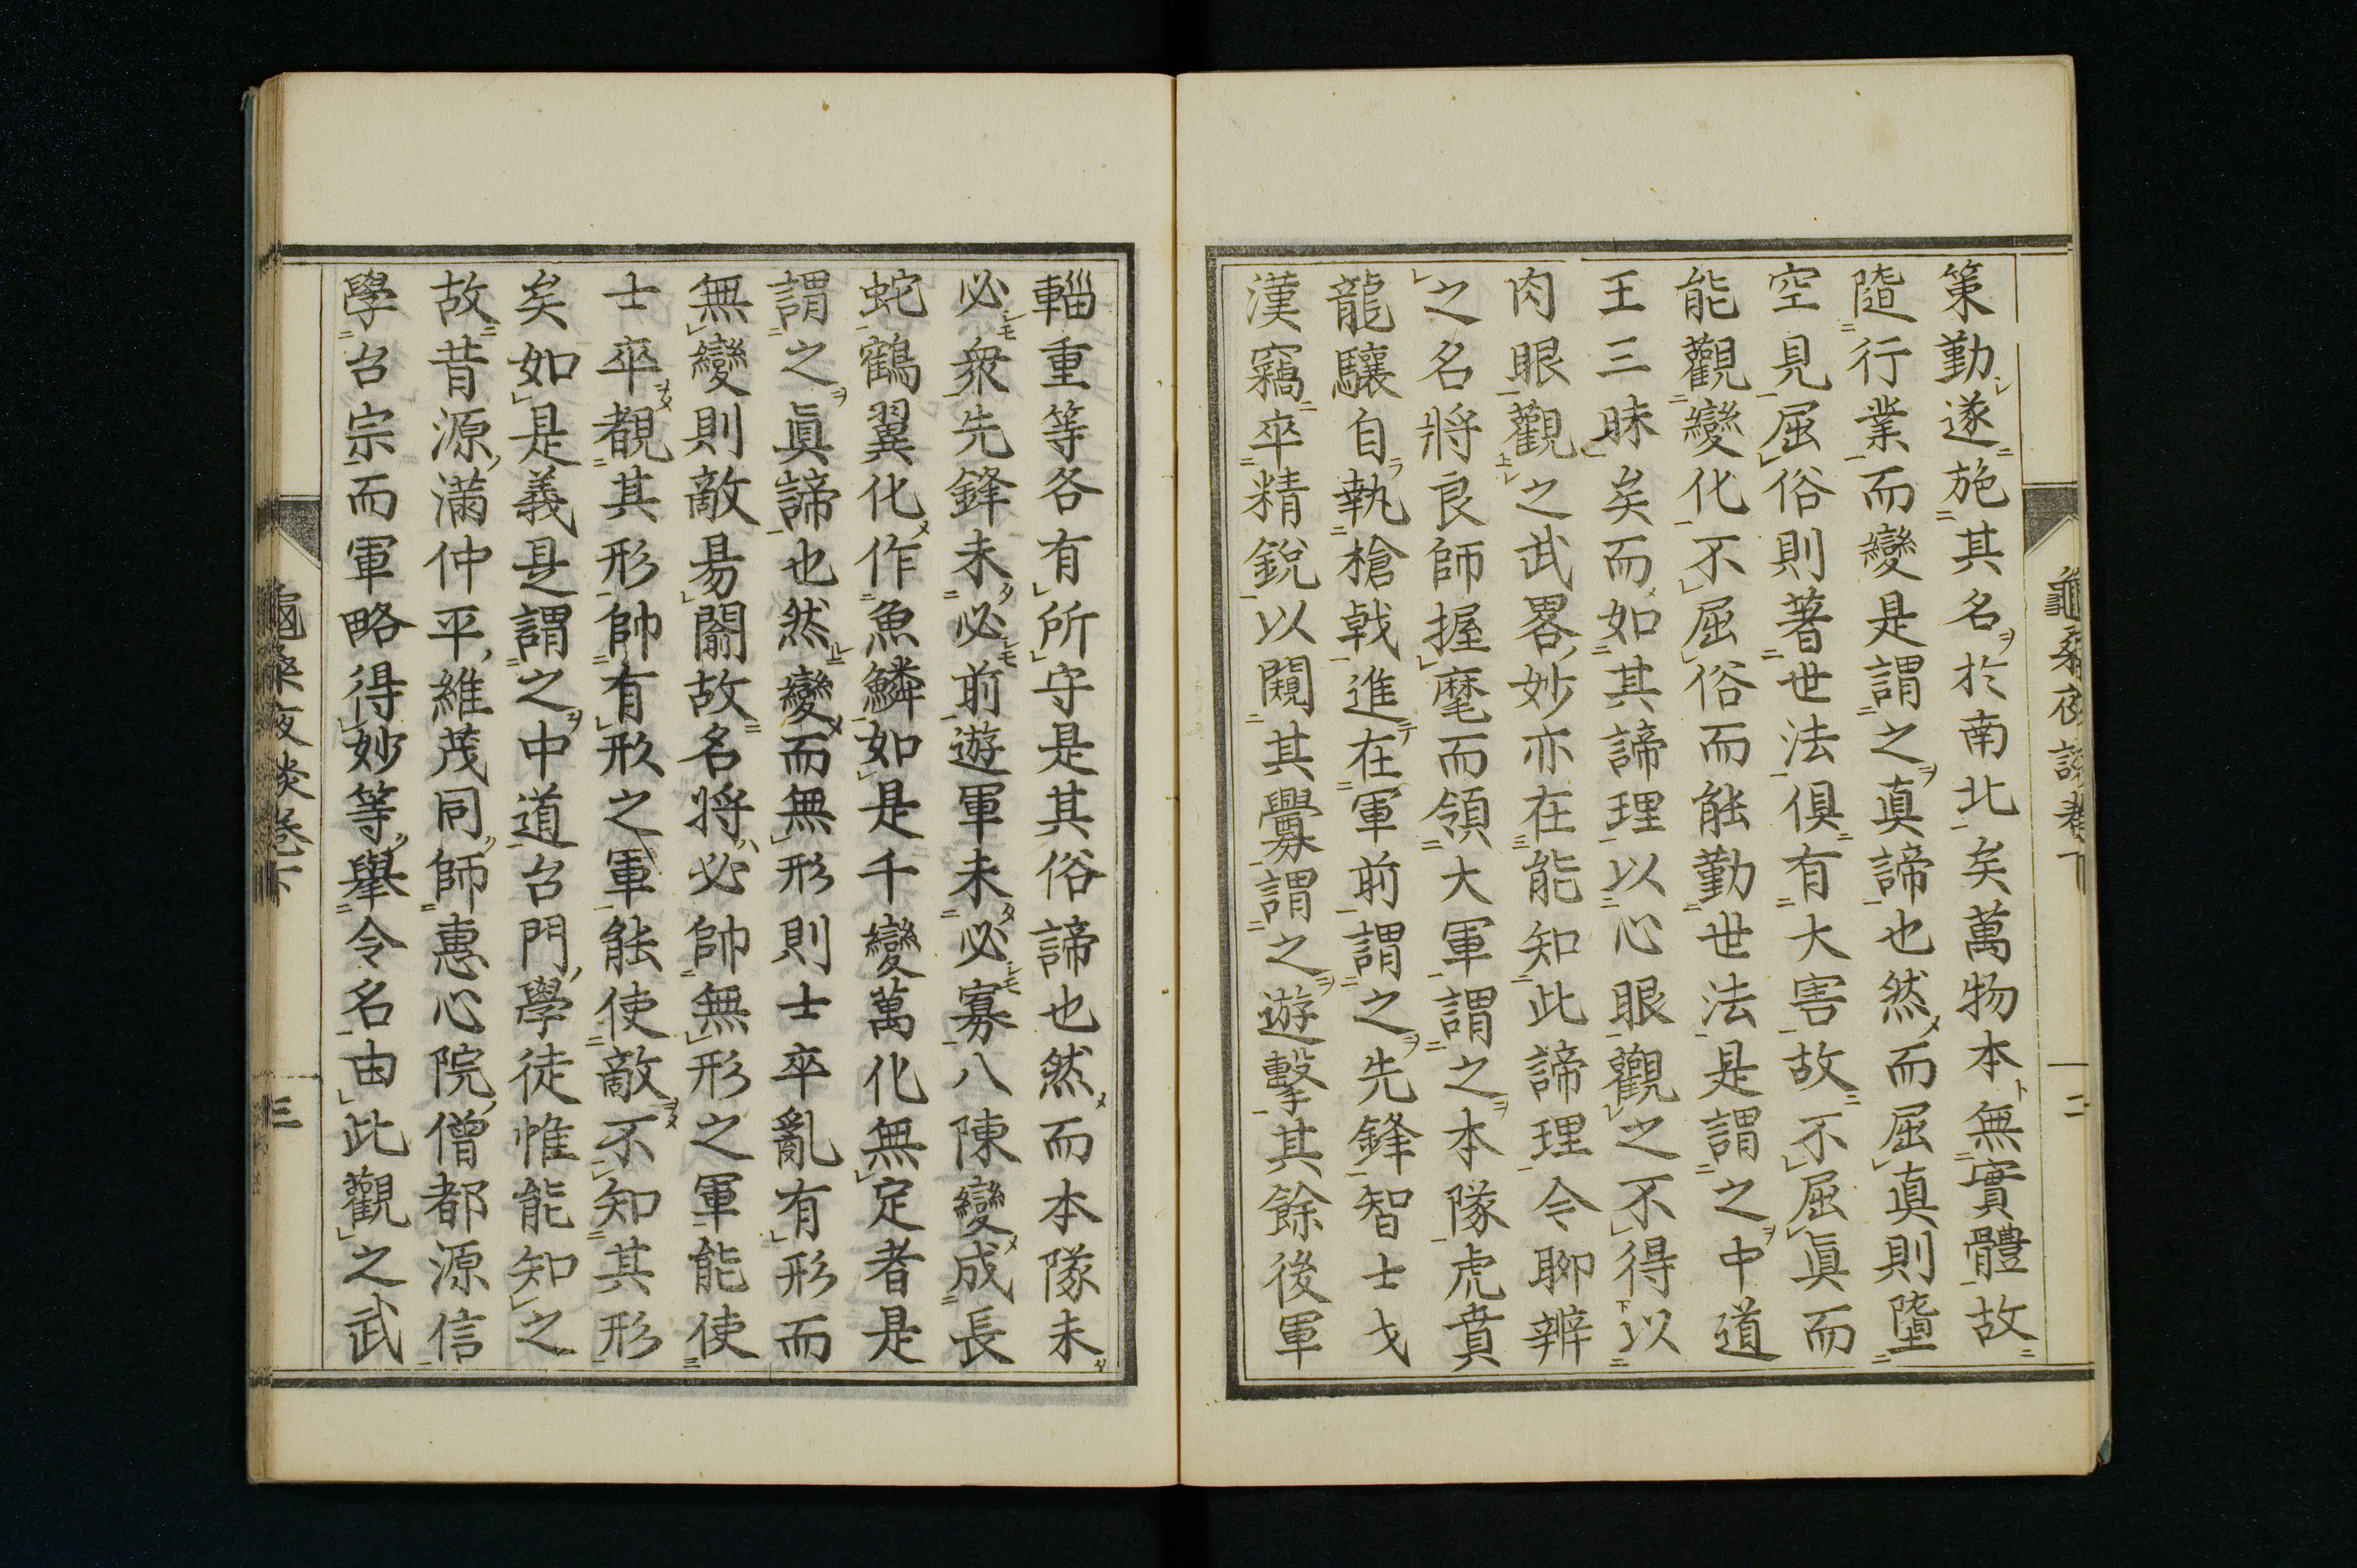 策勤遂施其名於南北矣萬物本無實體故
隨行業而變是謂之眞諦也然而屈眞則墮
空見屈俗則著世法俱有大害故不屈眞而
能觀變化不屈俗而能勤世法是謂之中道
王三昧矣而如其諦理以心眼觀之不得以
肉眼觀之武畧妙亦在能知此諦理今聊辨
之名將良師握麾而領大軍謂之本隊虎賁
龍驤自執槍戟進在軍前謂之先鋒智士戈
漢竊卒精銳以閱其釁謂之遊擊其餘後軍
輜重等各有所守是其俗諦也然而本隊未
必衆先鋒未必前遊軍未必寡八陳變成長
蛇鶴翼化作魚鱗如是千變萬化無定者是
謂之眞諦也然變而無形則士卒亂有形而
無變則敵易闘故名將必帥無形之軍能使
士卒覩其形帥有形之軍能使敵不知其形
矣如是義是謂之中道台門學徒惟能知之
故昔源滿仲平維茂同師惠心院僧都源信
學台宗而軍略得妙等擧令名由此觀之武
龜桑夜談卷下
二
三